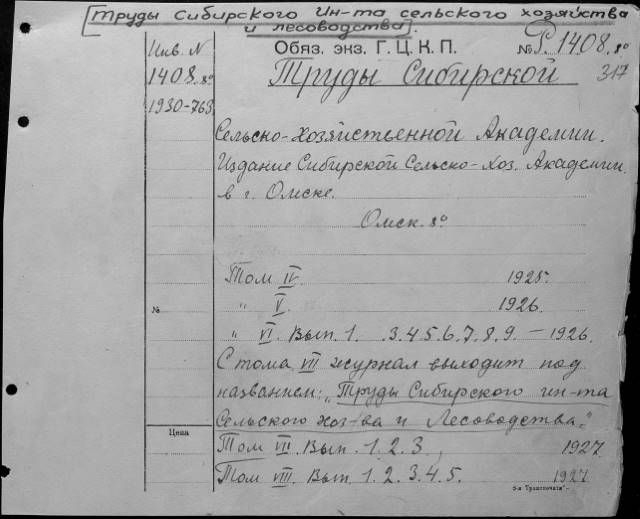 [Труды Сибирского Ин-та сельского хозяйства
и лесоводства].
Инв. N
Обяз. экз. Г. Ц. К. П.
№ Р. 1408. 8°
1408. 8°
Труды Сибирской
317
1930-763
Сельско-Хозяйственной Академии.
Издание Сибирской Сельско-Хоз. Академии
в г. Омске.
Омск. 8°
Том IV. 1925.
№ " V. 1926.
" VI. Вып. 1. 3.4.5.6.7.8.9. — 1926.
С тома VII журнал выходит под
названием: „Труды Сибирского ин-та
Сельского хоз-ва и Лесоводства."
Цена
Том VII. Вып. 1. 2. 3, 1927
Том VIII. Вып. 1. 2. 3. 4. 5. 1927
5-я Транспечати"